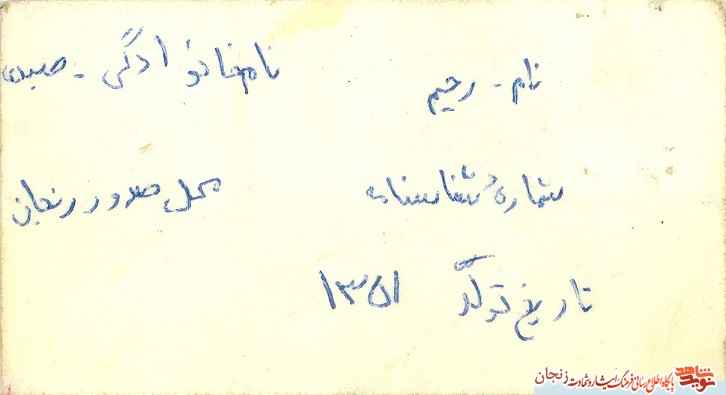 نام - رحیم نام خانوادگی - صیدی
شماره شناسنامه محل صدور زنجان
تاریخ تولّد ۱۳۵۱
نوید شاهد
پایگاه اطلاع رسانی فرهنگ ایثار و شهادت زنجان